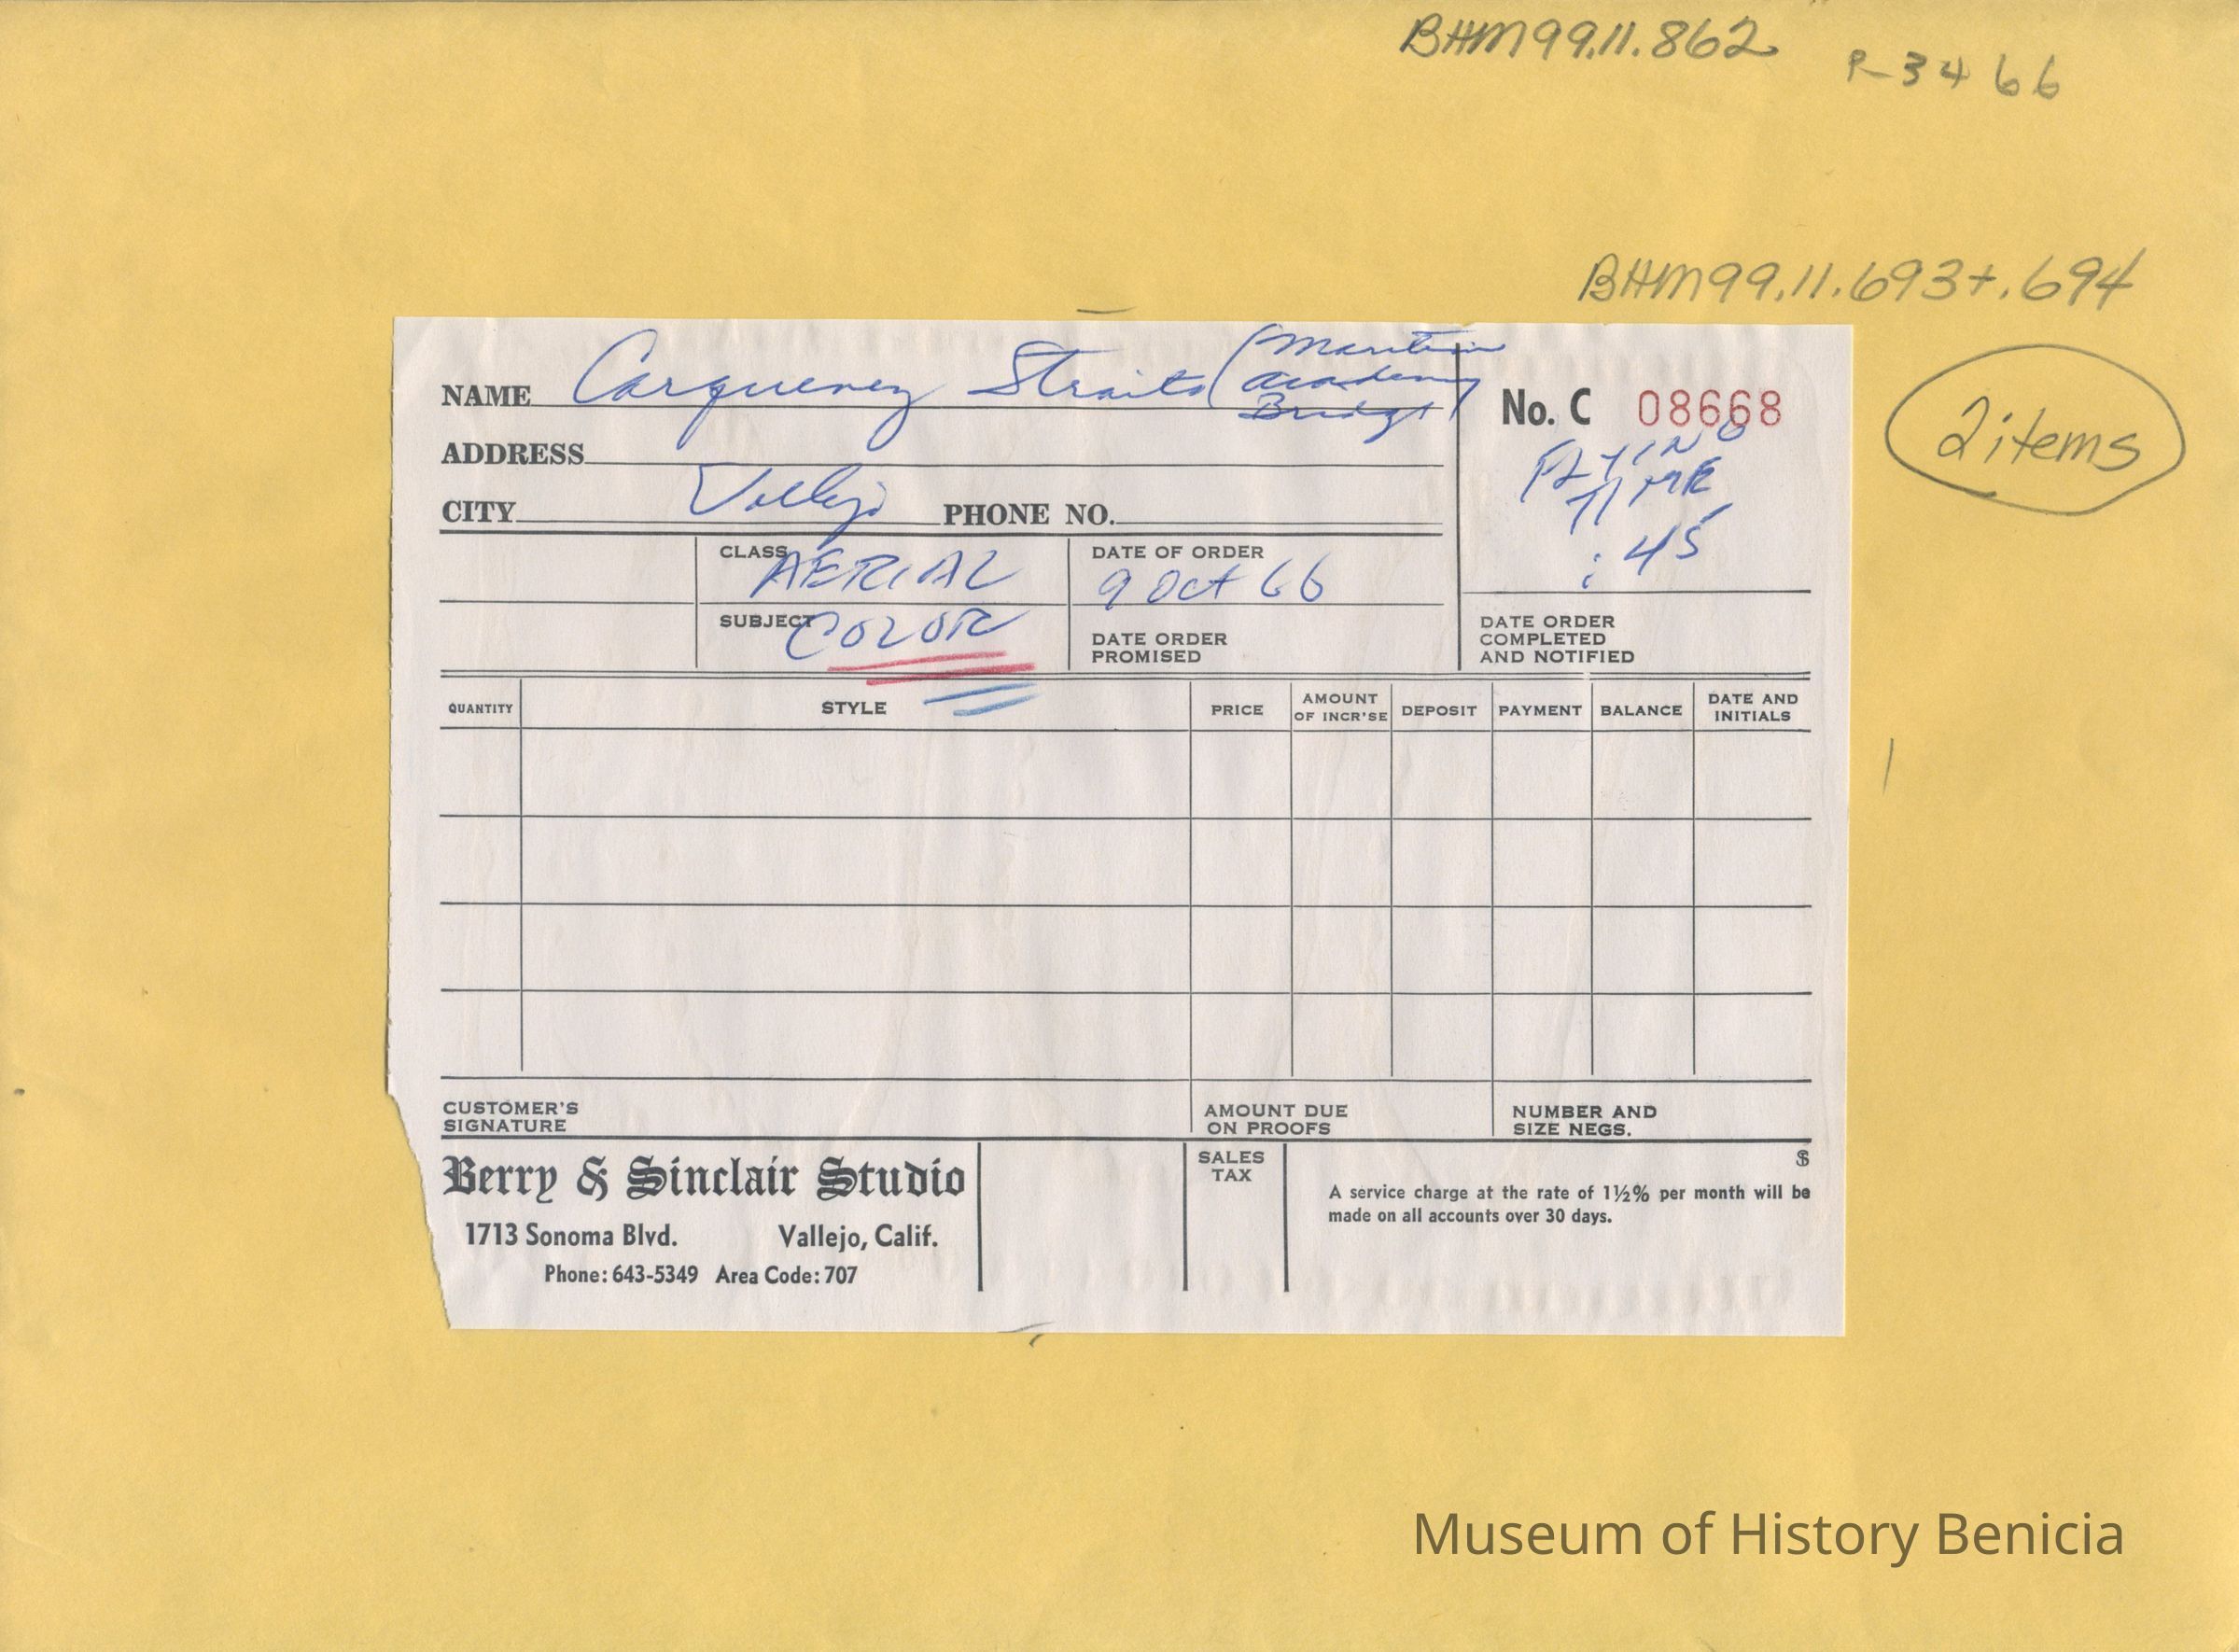 BHM99.11.862
R-3466
BHM99.11.693+.694
2 items
NAME Carquenez Straits (Maritime
Academy
Bridge)
No. C 08668
ADDRESS
FLYING
TIME
:45
CITY Vallejo PHONE NO.
CLASS AERIAL
DATE OF ORDER
9 Oct 66
SUBJECT COLOR
DATE ORDER
PROMISED
DATE ORDER
COMPLETED
AND NOTIFIED
QUANTITY STYLE PRICE AMOUNT OF INCR'SE DEPOSIT PAYMENT BALANCE DATE AND INITIALS
CUSTOMER'S
SIGNATURE
AMOUNT DUE
ON PROOFS
NUMBER AND
SIZE NEGS.
Berry & Sinclair Studio
1713 Sonoma Blvd. Vallejo, Calif.
Phone: 643-5349 Area Code: 707
SALES
TAX
$
A service charge at the rate of 1½% per month will be
made on all accounts over 30 days.
Museum of History Benicia